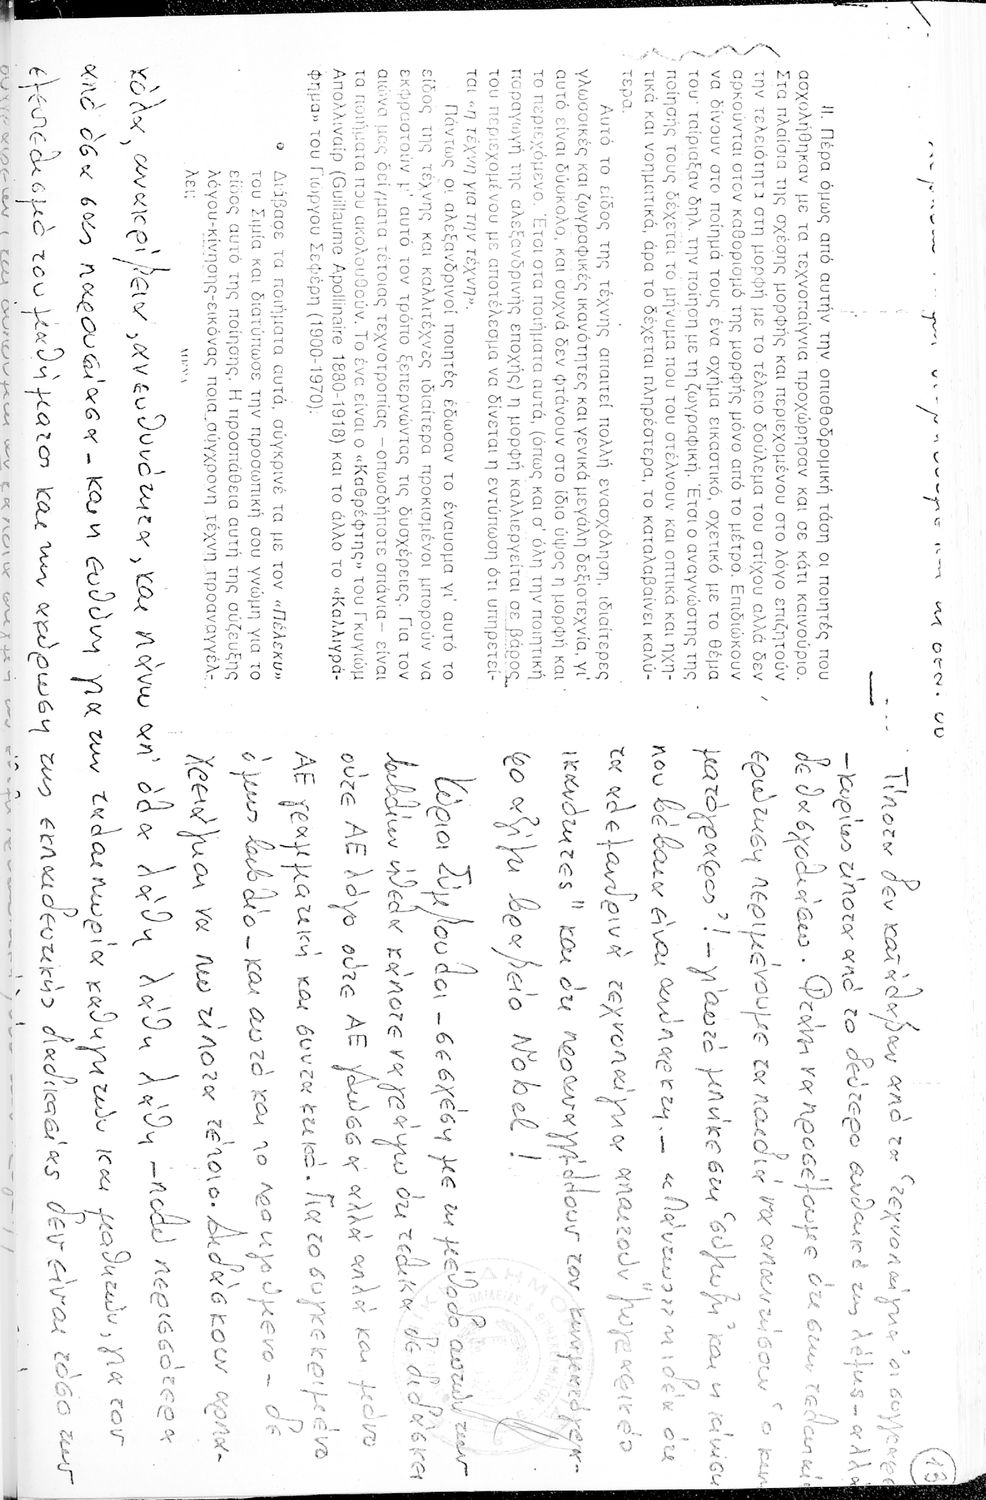 13
II. Πέρα όμως από αυτήν την οπισθοδρομική τάση οι ποιητές που
ασχολήθηκαν με τα τεχνοπαίγνια προχώρησαν και σε κάτι καινούριο.
Στα πλαίσια της σχέσης μορφής και περιεχομένου στο λόγο επιζητούν
την τελειότητα στη μορφή με το τέλειο δούλεμα του στίχου αλλά δεν
αρκούνται στον καθορισμό της μορφής μόνο από το μέτρο. Επιδιώκουν
να δίνουν στο ποίημά τους ένα σχήμα εικαστικό, σχετικό με το θέμα
του· ταίριαξαν δηλ. την ποίηση με τη ζωγραφική. Έτσι ο αναγνώστης της
ποίησής τους δέχεται το μήνυμα που του στέλνουν και οπτικά και ηχη-
τικά και νοηματικά, άρα το δέχεται πληρέστερα, το καταλαβαίνει καλύ-
τερα.
Αυτό το είδος της τέχνης απαιτεί πολλή ενασχόληση, ιδιαίτερες
γλωσσικές και ζωγραφικές ικανότητες και γενικά μεγάλη δεξιοτεχνία, γι'
αυτό είναι δύσκολο, και συχνά δεν φτάνουν στο ίδιο ύψος η μορφή και
το περιεχόμενο. Έτσι στα ποιήματα αυτά, (όπως και σ' όλη την ποιητική
παραγωγή της αλεξανδρινής εποχής) η μορφή καλλιεργείται σε βάρος
του περιεχομένου με αποτέλεσμα να δίνεται η εντύπωση ότι υπηρετεί-
ται «η τέχνη για την τέχνη».
Πάντως οι αλεξανδρινοί ποιητές έδωσαν το έναυσμα γι' αυτό το
είδος της τέχνης και καλλιτέχνες ιδιαίτερα προικισμένοι μπορούν να
εκφραστούν μ' αυτό τον τρόπο ξεπερνώντας τις δυσχέρειες. Για τον
αιώνα μας δείγματα τέτοιας τεχνοτροπίας – οπωσδήποτε σπάνια – είναι
τα ποιήματα που ακολουθούν. Το ένα είναι ο «Καθρέφτης» του Γκυγιώμ
Απολλιναίρ (Guillaume Apollinaire 1880-1918) και το άλλο το «Καλλιγρά-
φημα» του Γιώργου Σεφέρη (1900-1970):
Διάβασε τα ποιήματα αυτά, σύγκρινέ τα με τον «Πέλεκυ»
του Σιμία και διατύπωσε την προσωπική σου γνώμη για το
είδος αυτό της ποίησης. Η προσπάθεια αυτή της σύζευξης
λόγου-κίνησης-εικόνας ποια σύγχρονη τέχνη προαναγγέλ-
λει;
Τίποτα δεν κατάλαβαν από τα "τεχνοπαίγνια" οι συγγραφ
- κυρίως τίποτα από το δεύτερο συνθετικό της λέξης - αλλά
δε θα σχολιάσω. Φτάνει να προσέξουμε ότι στην τελευταί
ερώτηση περιμένουμε τα παιδιά να απαντήσουν "ο κιν
ματογράφος"! - γι αυτό μπήκε στη "σύζευξη" και η κίνηση
που βέβαια είναι ανύπαρκτη. - «Πάντως» η ιδέα ότι
τα αλεξανδρινά τεχνοπαίγνια απαιτούν "ζωγραφικές
ικανότητες" και ότι προαναγγέλλουν τον κινηματόγρα-
φο αξίζει βραβείο Νόbel!
Κύριοι Σύμβουλοι - σε σχέση με τη μέθοδο αυτών των
βιβλίων ήθελα κάποτε να γράψω ότι τελικά δε διδάσκει
ούτε ΑΕ λόγο ούτε ΑΕ γλώσσα αλλά απλά και μόνο
ΑΕ γραμματική και συντακτικό. Για το συγκεκριμένο
όμως βιβλίο - και αυτό και το προηγούμενο - δε
χρειάζομαι να πω τίποτα τέτοιο. Διδάσκουν αρπα-
κόλα, ανακρίβεια, ανευθυνότητα, και πάνω απ' όλα λάθη λάθη λάθη - πολύ περισσότερα
από όσα σας παρουσίασα - και η ευθύνη για την ταλαιπωρία καθηγητών και μαθητών, για τον
εξευτελισμό του μαθήματος και την ακύρωση της εκπαιδευτικής διαδικασίας δεν είναι τόσο των